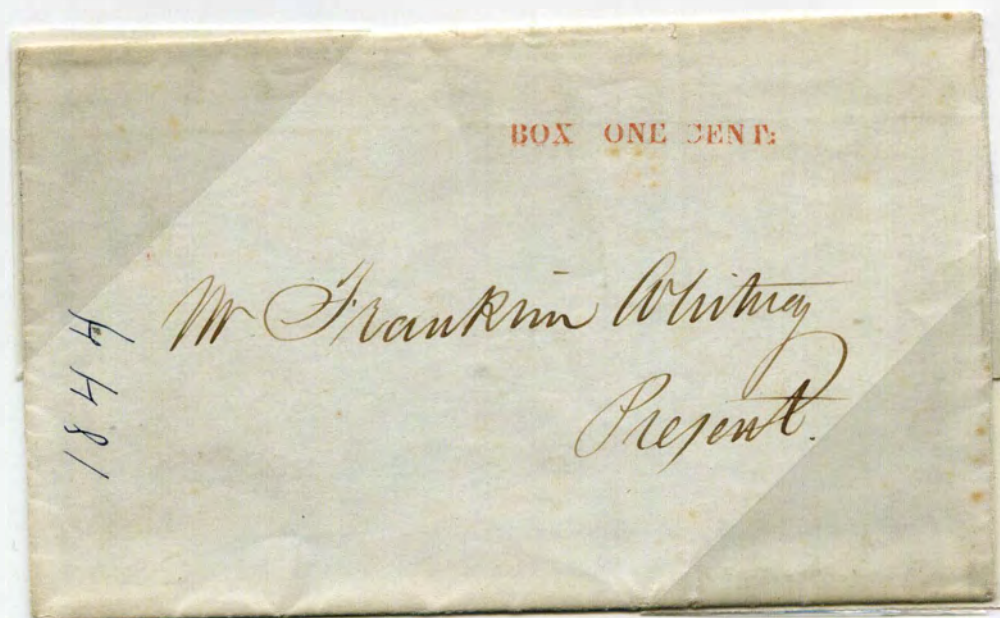 BOX ONE CENT:
Mr Franklin Whitney
Present.
1844